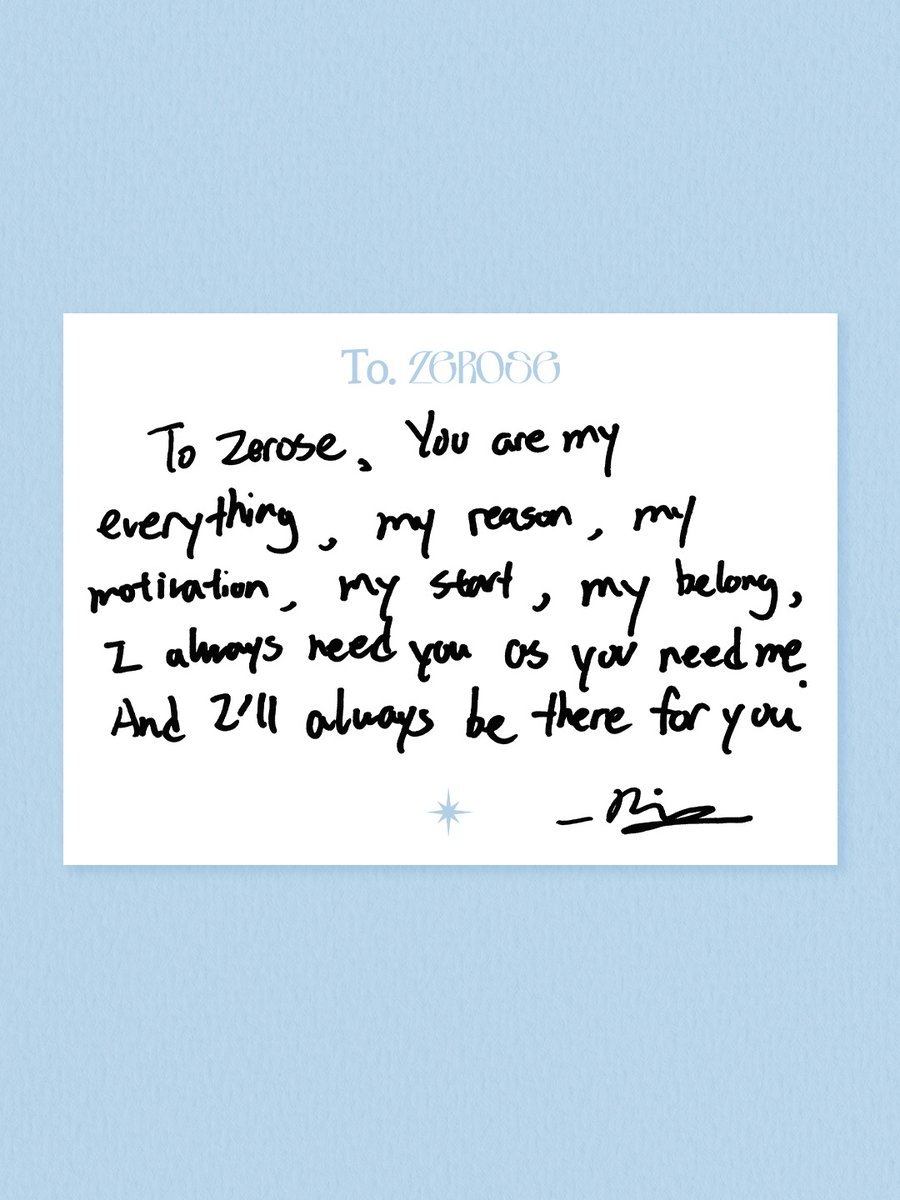 To. ZEROSE
To Zerose, You are my
everything, my reason, my
motivation, my start, my belong,
I always need you as you need me.
And I'll always be there for you